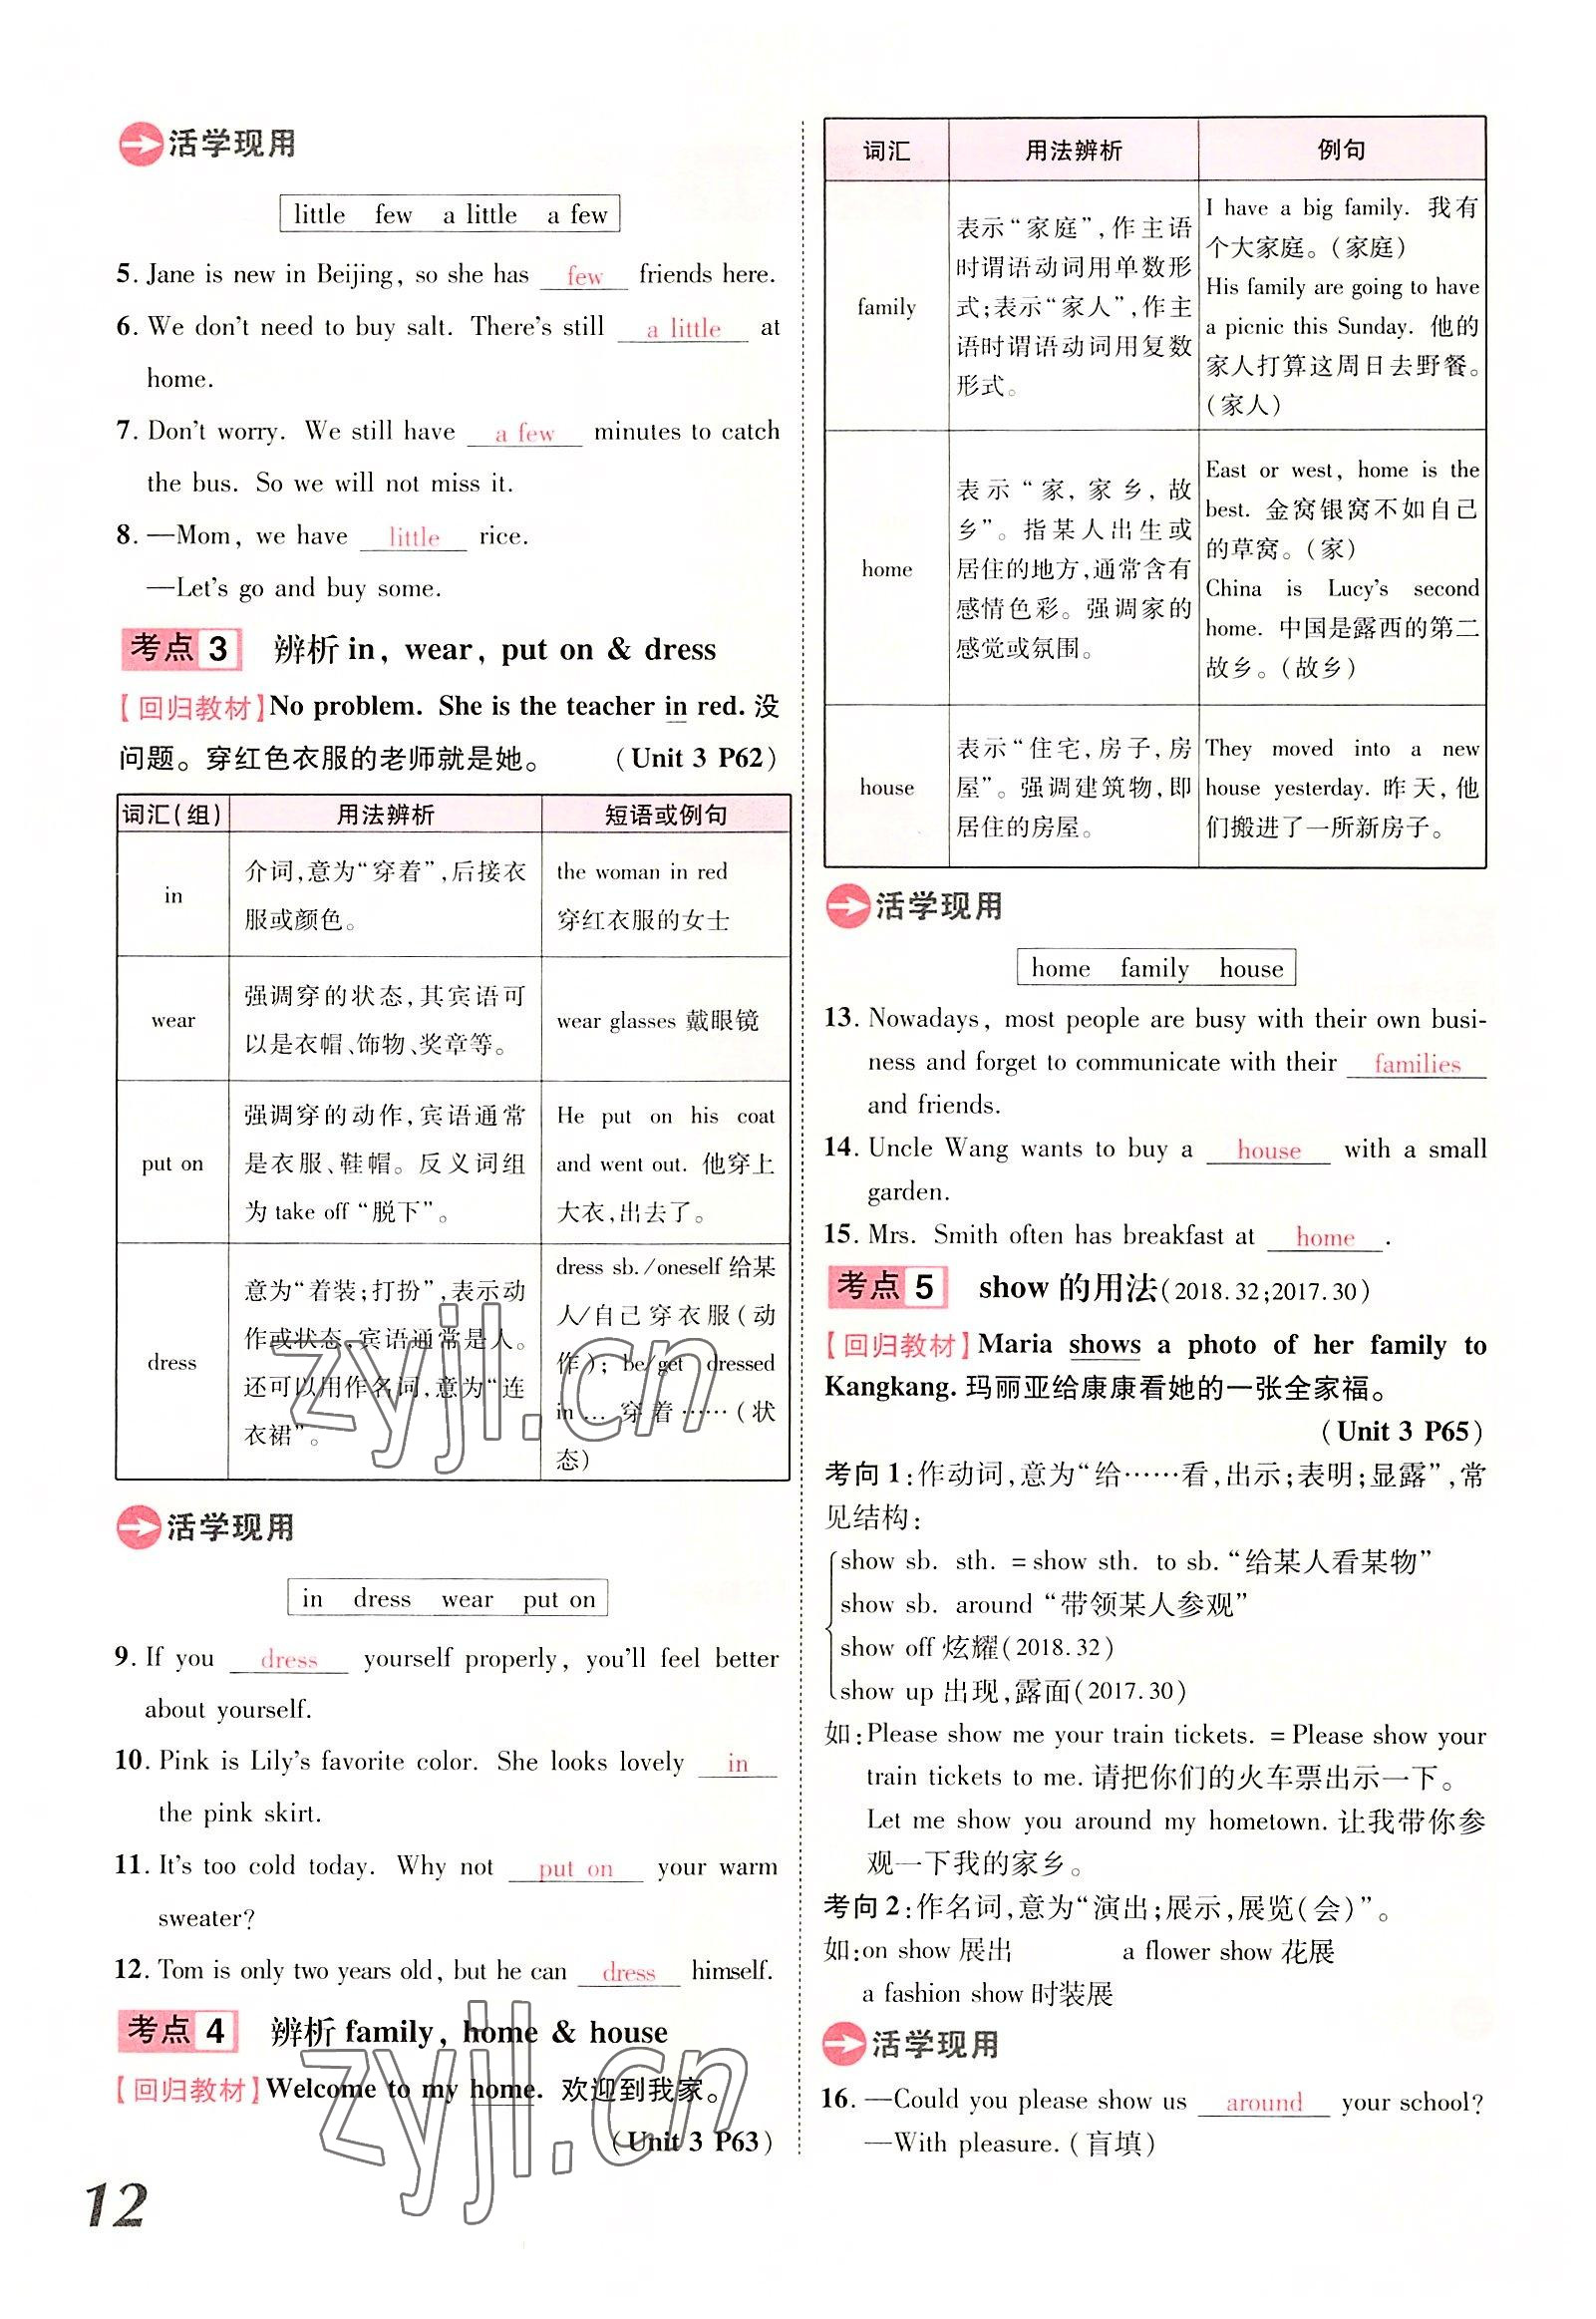 活学现用
little few a little a few
5. Jane is new in Beijing, so she has few friends here.
6. We don't need to buy salt. There's still a little at
home.
7. Don't worry. We still have a few minutes to catch
the bus. So we will not miss it.
8. —Mom, we have little rice.
—Let's go and buy some.
考点 3 辨析 in, wear, put on & dress
【回归教材】No problem. She is the teacher in red. 没
问题。穿红色衣服的老师就是她。 (Unit 3 P62)
词汇(组) 用法辨析 短语或例句
in
介词,意为“穿着”,后接衣
服或颜色。
the woman in red
穿红衣服的女士
wear
强调穿的状态,其宾语可
以是衣帽、饰物、奖章等。
wear glasses 戴眼镜
put on
强调穿的动作,宾语通常
是衣服、鞋帽。反义词组
为 take off “脱下”。
He put on his coat
and went out. 他穿上
大衣,出去了。
dress
意为“着装;打扮”,表示动
作或状态,宾语通常是人。
还可以用作名词,意为“连
衣裙”。
dress sb./oneself 给某
人/自己穿衣服(动
作); be/get dressed
in … 穿着……(状
态)
活学现用
in dress wear put on
9. If you dress yourself properly, you'll feel better
about yourself.
10. Pink is Lily's favorite color. She looks lovely in
the pink skirt.
11. It's too cold today. Why not put on your warm
sweater?
12. Tom is only two years old, but he can dress himself.
考点 4 辨析 family, home & house
【回归教材】Welcome to my home. 欢迎到我家。
(Unit 3 P63)
12
词汇 用法辨析 例句
family
表示“家庭”,作主语
时谓语动词用单数形
式;表示“家人”,作主
语时谓语动词用复数
形式。
I have a big family. 我有
个大家庭。(家庭)
His family are going to have
a picnic this Sunday. 他的
家人打算这周日去野餐。
(家人)
home
表示“家,家乡,故
乡”。指某人出生或
居住的地方,通常含有
感情色彩。强调家的
感觉或氛围。
East or west, home is the
best. 金窝银窝不如自己
的草窝。(家)
China is Lucy's second
home. 中国是露西的第二
故乡。(故乡)
house
表示“住宅,房子,房
屋”。强调建筑物,即
居住的房屋。
They moved into a new
house yesterday. 昨天,他
们搬进了一所新房子。
活学现用
home family house
13. Nowadays, most people are busy with their own busi-
ness and forget to communicate with their families
and friends.
14. Uncle Wang wants to buy a house with a small
garden.
15. Mrs. Smith often has breakfast at home.
考点 5 show 的用法(2018.32;2017.30)
【回归教材】Maria shows a photo of her family to
Kangkang. 玛丽亚给康康看她的一张全家福。
(Unit 3 P65)
考向 1:作动词,意为“给……看,出示;表明;显露”,常
见结构:
show sb. sth. = show sth. to sb. “给某人看某物”
show sb. around “带领某人参观”
show off 炫耀(2018.32)
show up 出现,露面(2017.30)
如:Please show me your train tickets. = Please show your
train tickets to me. 请把你们的火车票出示一下。
Let me show you around my hometown. 让我带你参
观一下我的家乡。
考向 2:作名词,意为“演出;展示,展览(会)”。
如:on show 展出 a flower show 花展
a fashion show 时装展
活学现用
16. —Could you please show us around your school?
—With pleasure. (盲填)
zyjl.cn
zyjl.cn